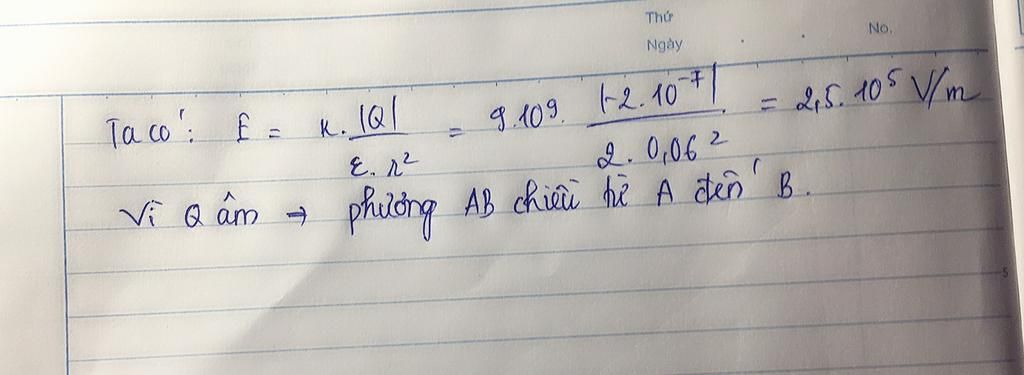 Thứ
Ngày
No.
Ta có: E = k. |Q| / ε. r² = 9.10⁹. |-2. 10⁻⁷| / 2. 0,06² = 2,5. 10⁵ V/m
Vì Q âm → phương AB chiều từ A đến B.
5